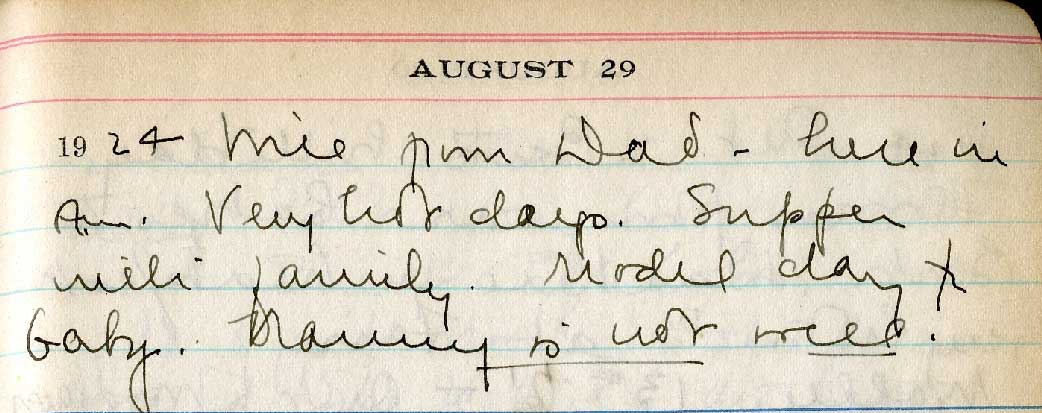 AUGUST 29
1924 Wire from Dad - here in
A.m. Very hot days. Supper
with family. Model day &
baby. Mammy is not well.